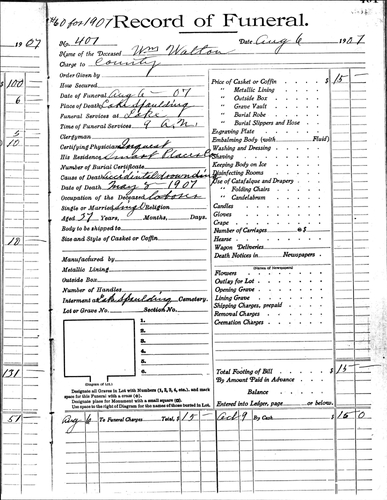 #60 for 1907 Record of Funeral.
1907
No. 407 Date Aug 6 1907
Name of the Deceased Wm Walton
Charge to County
Order Given by
How Secured
Date of Funeral Aug 6 - 07
Place of Death Lake Spaulding
Funeral Services at Lake
Time of Funeral Services 9 A.M.
Clergyman
Certifying Physician Inquest
His Residence Smart Placer Co
Number of Burial Certificate
Cause of Death Accidental drownding
Date of Death May 8 - 1907
Occupation of the Deceased labour
Single or Married Single Religion
Aged 37 Years, Months, Days.
Body to be shipped to
Size and Style of Casket or Coffin
Manufactured by
Metallic Lining
Outside Box
Number of Handles
Interment at Lake Spaulding Cemetery.
Lot or Grave No. Section No.
1.
2.
3.
4.
5.
6.
(Diagram of Lot.)
Designate all Graves in Lot with Numbers (1, 2, 3, 4, etc.), and mark
space for this Funeral with a cross (x).
Designate place for Monument with a small square (□).
Use space to the right of Diagram for the names of those buried in Lot.
Price of Casket or Coffin $ 15 -
" Metallic Lining
" Outside Box
" Grave Vault
" Burial Robe
" Burial Slippers and Hose
Engraving Plate
Embalming Body (with Fluid)
Washing and Dressing
Shaving
Keeping Body on Ice
Disinfecting Rooms
Use of Catafalque and Drapery
" Folding Chairs
" Candelabrum
Candles
Gloves
Crape
Number of Carriages @ $
Hearse
Wagon Deliveries
Death Notices in Newspapers
(Names of Newspapers)
Flowers
Outlay for Lot
Opening Grave
Lining Grave
Shipping Charges, prepaid
Removal Charges
Cremation Charges
Total Footing of Bill $ 15 -
By Amount Paid in Advance
Balance
Entered into Ledger, page or below.
Aug 6 To Funeral Charges Total, $ 15 - Oct 9 By Cash $ 15 0
$ 100
6
5
10
10
131
51